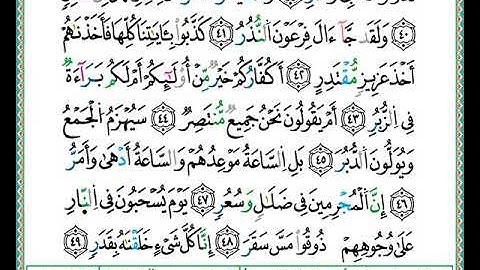 ﴿٤٠﴾ وَلَقَدْ جَآءَ ءَالَ فِرْعَوْنَ ٱلنُّذُرُ ﴿٤١﴾ كَذَّبُوا۟ بِـَٔايَـٰتِنَا كُلِّهَا فَأَخَذْنَـٰهُمْ
أَخْذَ عَزِيزٍ مُّقْتَدِرٍ ﴿٤٢﴾ أَكُفَّارُكُمْ خَيْرٌ مِّنْ أُو۟لَـٰٓئِكُمْ أَمْ لَكُم بَرَآءَةٌ
فِى ٱلزُّبُرِ ﴿٤٣﴾ أَمْ يَقُولُونَ نَحْنُ جَمِيعٌ مُّنتَصِرٌ ﴿٤٤﴾ سَيُهْزَمُ ٱلْجَمْعُ
وَيُوَلُّونَ ٱلدُّبُرَ ﴿٤٥﴾ بَلِ ٱلسَّاعَةُ مَوْعِدُهُمْ وَٱلسَّاعَةُ أَدْهَىٰ وَأَمَرُّ
﴿٤٦﴾ إِنَّ ٱلْمُجْرِمِينَ فِى ضَلَـٰلٍ وَسُعُرٍ ﴿٤٧﴾ يَوْمَ يُسْحَبُونَ فِى ٱلنَّارِ
عَلَىٰ وُجُوهِهِمْ ذُوقُوا۟ مَسَّ سَقَرَ ﴿٤٨﴾ إِنَّا كُلَّ شَىْءٍ خَلَقْنَـٰهُ بِقَدَرٍ ﴿٤٩﴾